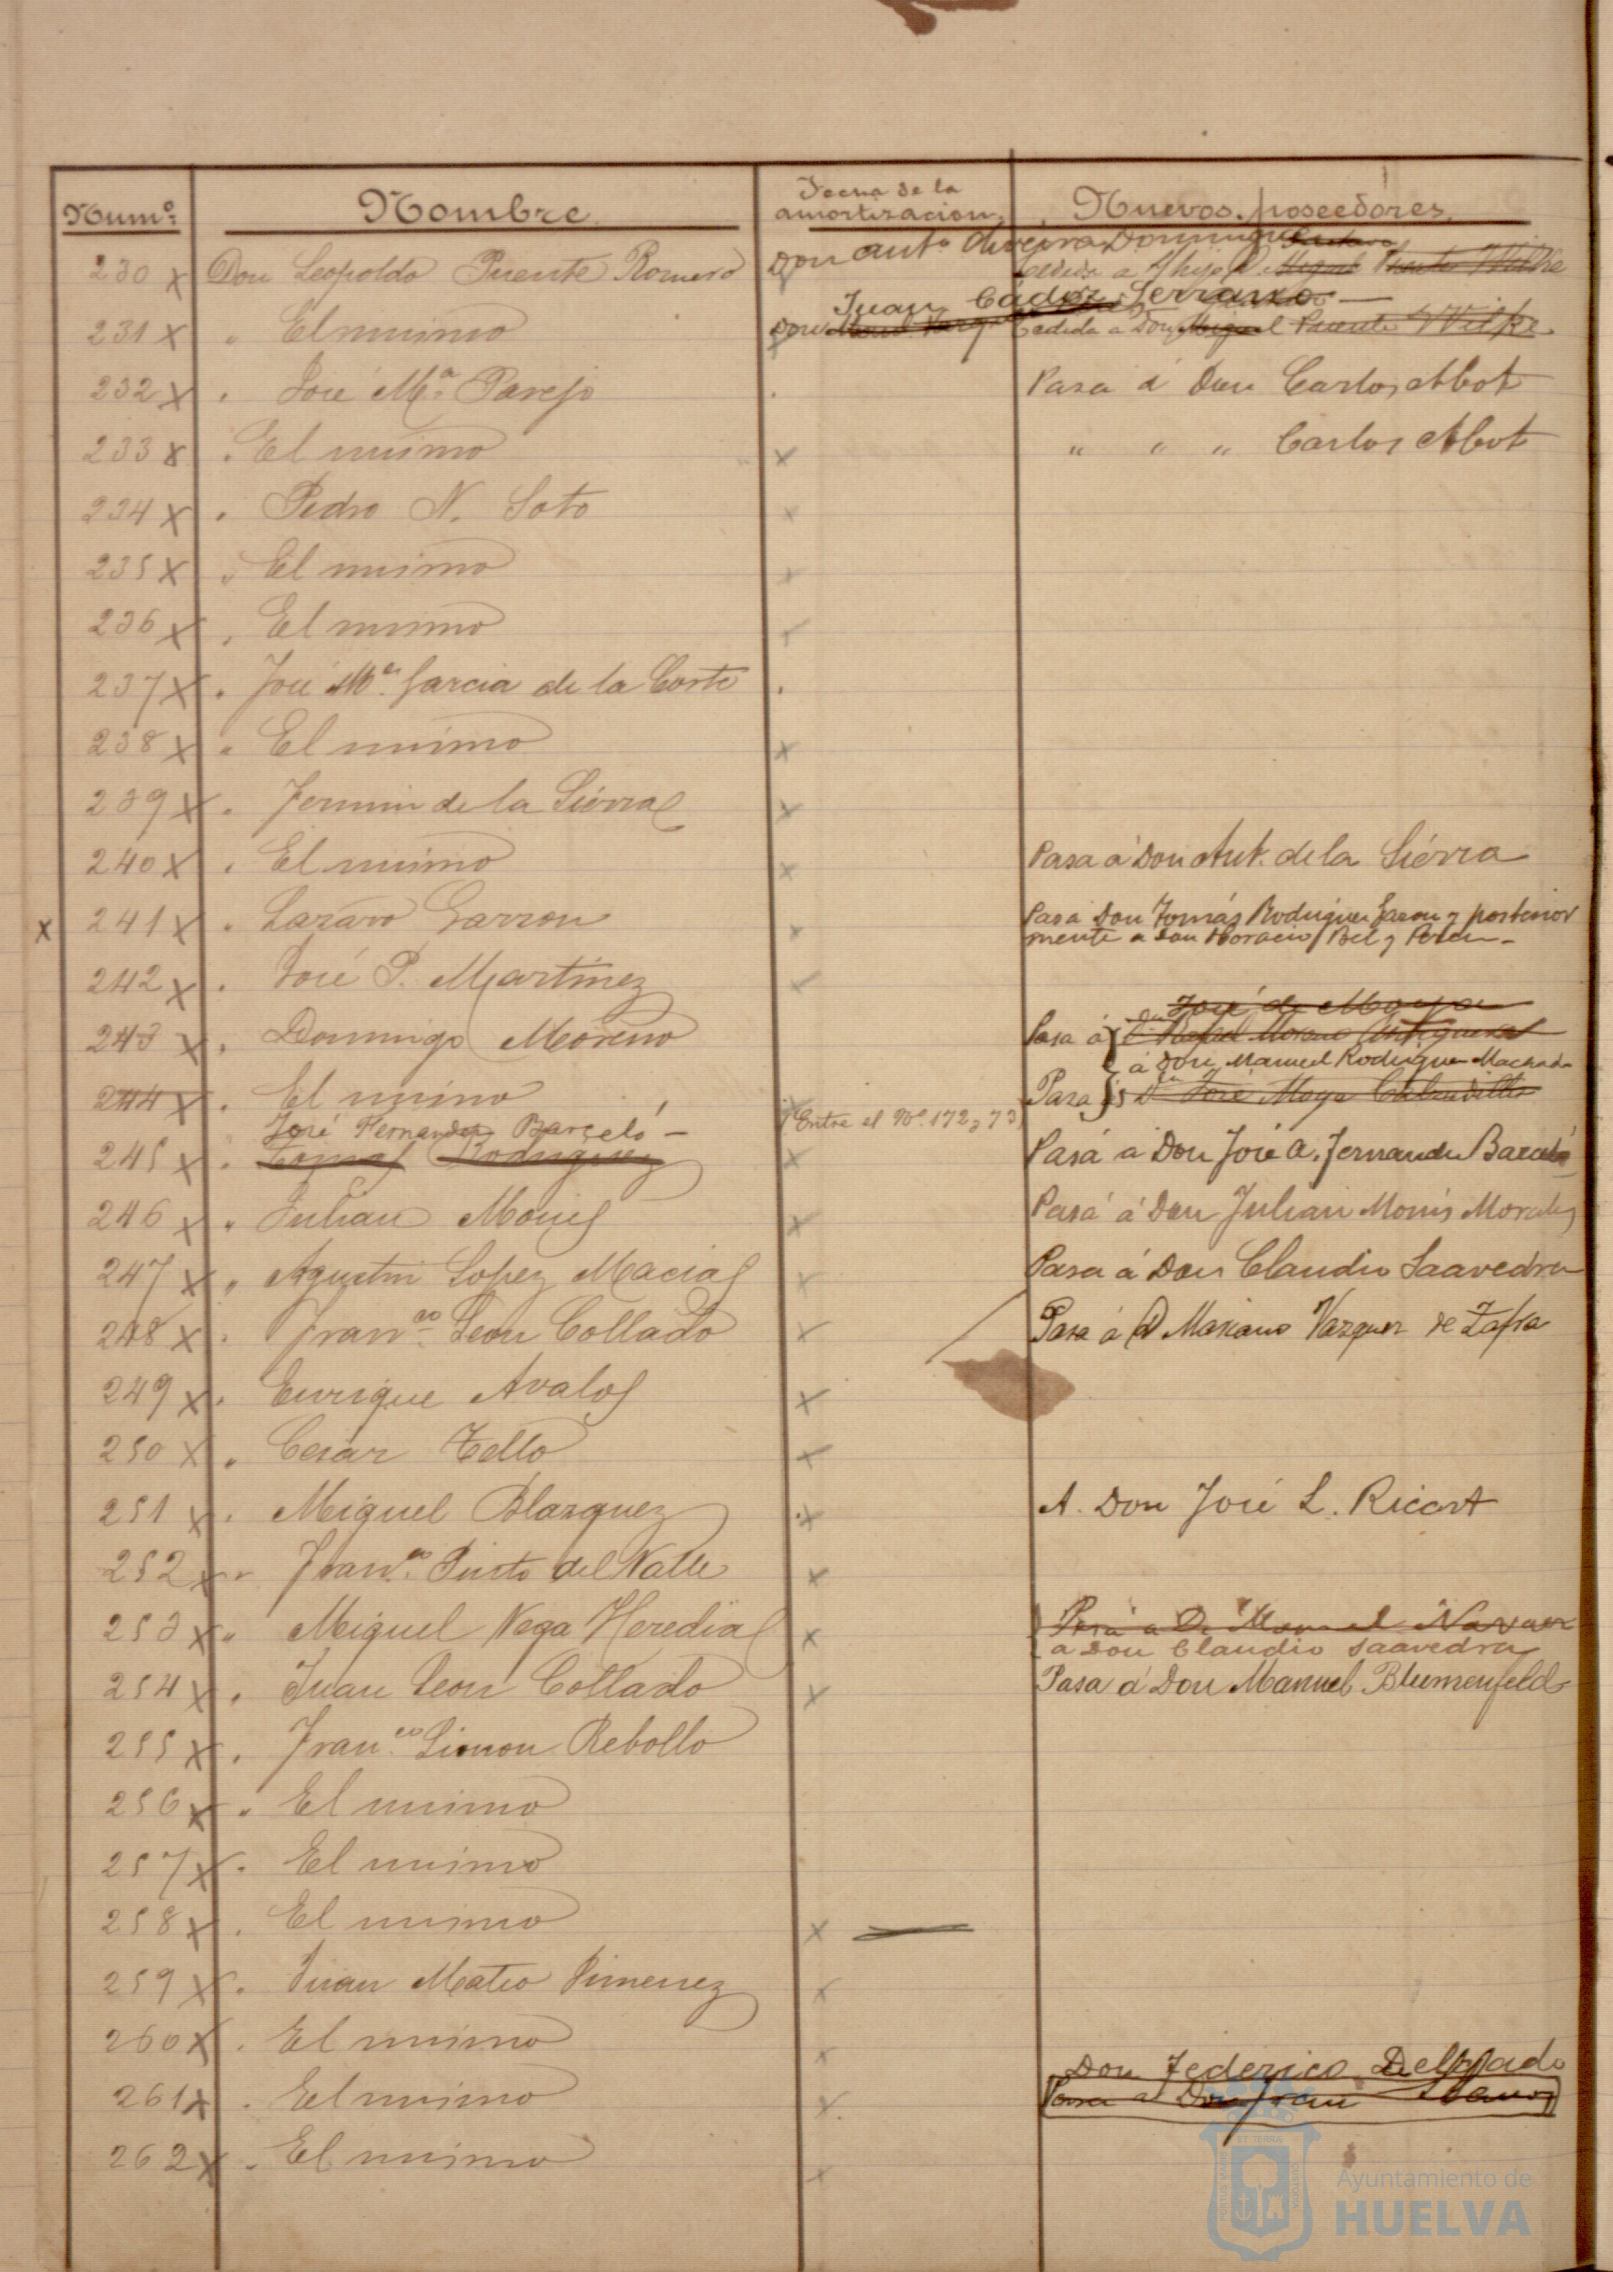 Numº Nombre Fecha de la amortizacion. Nuevos poseedores.
Don Antº Oliveira Dominguez
230 x Don Leopoldo Puente Romero cedida a Miguel Puente Wilke
Juan Cádiz Serrano —
231 x " El mismo Don Cedida a Don Miguel Puente Wilke.
232 x " José Mª Parejo Pasa á Don Carlos Abot
233 x " El mismo x " " " Carlos Abot
234 x " Pedro N. Soto x
235 x " El mismo x
236 x " El mismo x
237 x " José Mª Garcia de la Corte
238 x " El mismo x
239 x " Fermin de la Siérra x
240 x " El mismo x Pasa á Don Ant. de la Siérra
x 241 x " Lazaro Garzon x Pasa Don Tomás Rodriguez Garzon y posterior
mente a Don Horacio Bel y
242 x " José P. Martinez x
José de Moya
243 x " Domingo Moreno Pasa á Dn Rafael Moreno Antiquera
á Don Manuel Rodriguez Machado
244 x " El mismo x Pasa á Dn José Moya
José Fernandez Barceló — Entre el Nº 172 y 73
245 x " Tomás Rodriguez x Pasá a Don José A. Fernandez Barceló
246 x " Julian Monis x Pasá á Don Julian Monis Morales
247 x " Agustin Lopez Macias x Pasa á Don Claudio Saavedra
248 x " Franco Leon Collado x Pasa á D Mariano Vazquez de Zafra
249 x " Enrique Avalos x
250 x " Cesár Tello x
251 x " Miguel Blazquez x A. Don José L. Ricart
252 x " Franco Pinto del Valle x
253 x " Miguel Vega Heredia x Pasá a D. Manuel Narvaez
a Don Claudio Saavedra
254 x " Juan Leon Collado x Pasa á Don Manuel Blumenfeld
255 x " Franco Simon Rebollo
256 x " El mismo
257 x " El mismo
258 x " El mismo x —
259 x " Juan Mateo Jimenez x
260 x " El mismo x
Don Federico Delgado
261 x " El mismo x Pasa a Don Juan
262 x " El mismo x
PORTUS MARIS ET TERRAE CUSTODIA
Ayuntamiento de
HUELVA